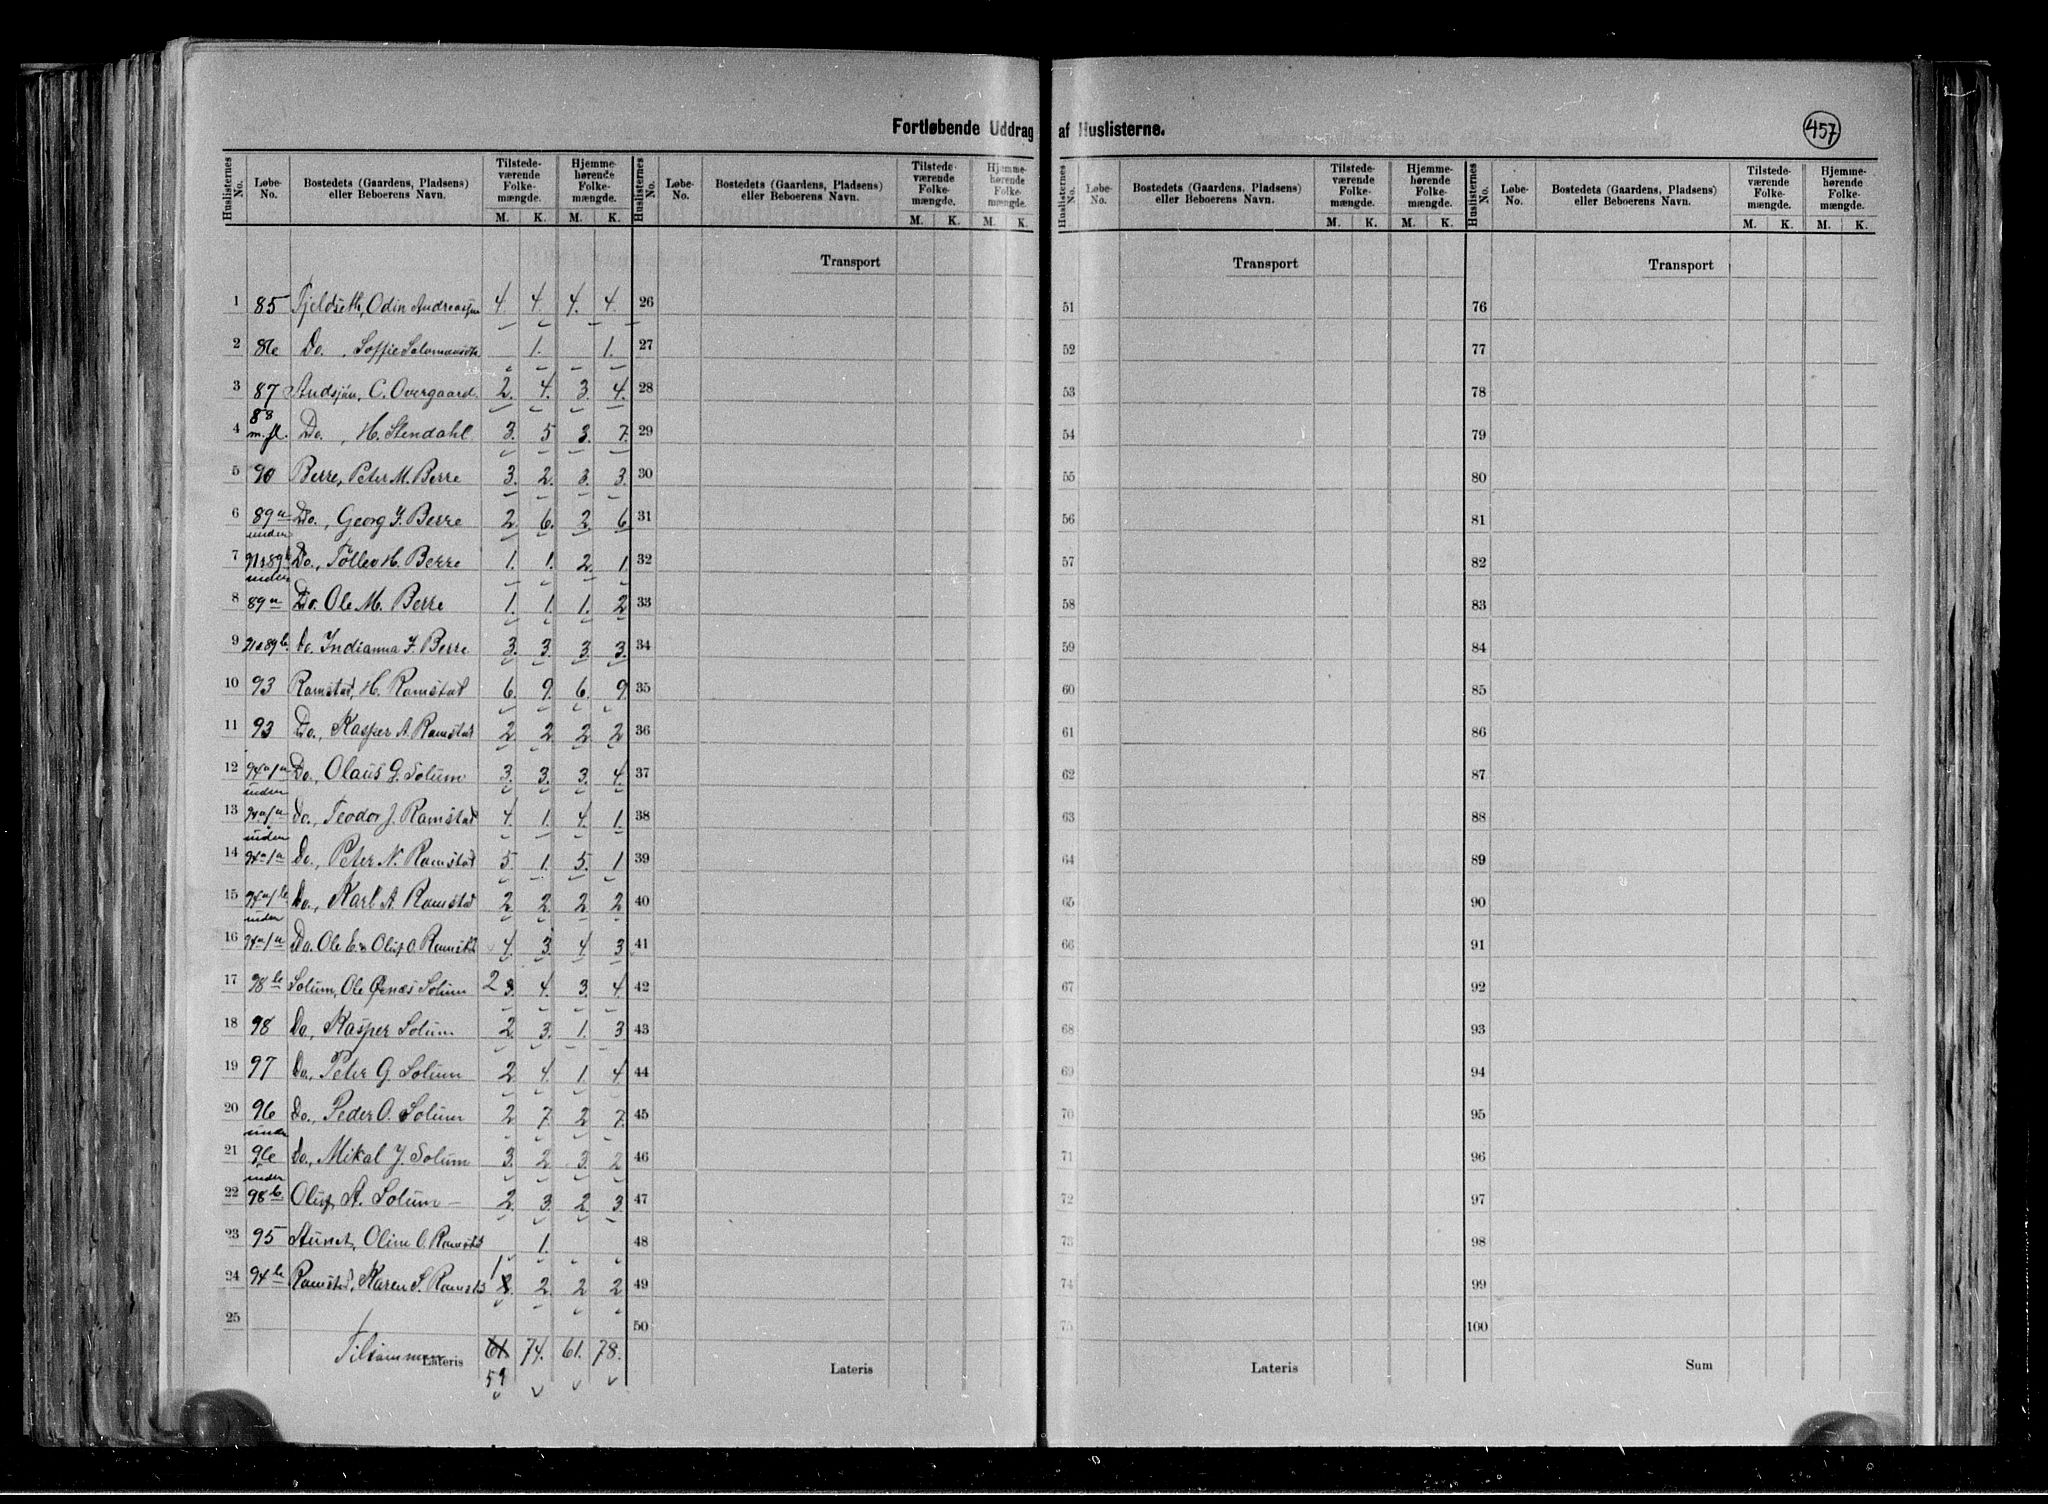 457
Fortløbende Uddrag af Huslisterne.
Huslisternes No. Løbe-No. Bostedets (Gaardens, Pladsens) eller Beboerens Navn. Tilstedeværende Folkemængde. M. K. Hjemmehørende Folkemængde. M. K.
Huslisternes No. Løbe-No. Bostedets (Gaardens, Pladsens) eller Beboerens Navn. Tilstedeværende Folkemængde. M. K. Hjemmehørende Folkemængde. M. K.
Huslisternes No. Løbe-No. Bostedets (Gaardens, Pladsens) eller Beboerens Navn. Tilstedeværende Folkemængde. M. K. Hjemmehørende Folkemængde. M. K.
Huslisternes No. Løbe-No. Bostedets (Gaardens, Pladsens) eller Beboerens Navn. Tilstedeværende Folkemængde. M. K. Hjemmehørende Folkemængde. M. K.
Transport Transport Transport
1 85 Fjeldseth, Odin Andreasen 4. 4. 4. 4. 26 51 76
2 86 Do. , Soffie 1. 1. 27 52 77
3 87 Andsjøn, C. Overgaard. 2. 4. 3. 4. 28 53 78
4 88 m. fl. Do. , H. Stendahl 3. 5 3. 7. 29 54 79
5 90 Berre, Peter M. Berre 3. 2. 3. 3. 30 55 80
6 89a Do., Georg J. Berre 2. 6. 2. 6. 31 56 81
7 under Do., Tollev H. Berre 1. 1. 2. 1. 32 57 82
8 under 89a Do. Ole M. Berre 1. 1. 1. 2 33 58 83
9 Do. Indianna J. Berre 3. 3. 3. 3. 34 59 84
10 93 Ramstad, H. Ramstad 6. 9. 6. 9. 35 60 85
11 93 Do., Kasper A. Ramstad 2. 2. 2. 2 36 61 86
12 94a/a Do., Olaus G. Solum 3. 3. 3. 4. 37 62 87
13 under 94a/a Do., Teodor J. Ramstad 4. 1. 4. 1. 38 63 88
14 under 94a/a Do., Peter N. Ramstad 5. 1. 5. 1 39 64 89
15 94a/b Do., Karl A. Ramstad 2. 2. 2. 2 40 65 90
16 under 94a/a Do. Ole E. Oluf O. Ramstad 4. 3. 4. 3 41 66 91
17 98b Solum, Ole Solum 2 3. 4. 3. 4. 42 67 92
18 98 Do., Kasper Solum 2. 3. 1. 3 43 68 93
19 97 Do., Peter G. Solum 2. 4. 1. 4 44 69 94
20 96 Do., Peder O. Solum 2. 7. 2. 7. 45 70 95
21 under 96 Do., Mikal J. Solum 3. 2. 3. 2 46 71 96
22 under 98b Oluf A. Solum 2. 3. 2. 3. 47 72 97
23 95 Stunet, Oline O. Ramstad 1. 48 73 98
24 94b Ramstad, Karen S. Ramstad 1 2. 2. 2 2 49 74 99
25 50 75 100
Tilsammen Lateris 61 74. 61. 78. Lateris Lateris Sum
59